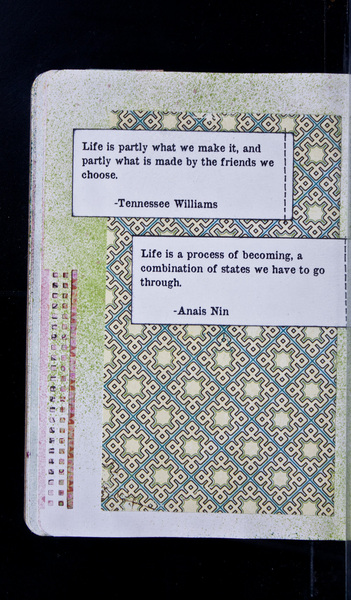 Life is partly what we make it, and
partly what is made by the friends we
choose.
-Tennessee Williams
Life is a process of becoming, a
combination of states we have to go
through.
-Anais Nin